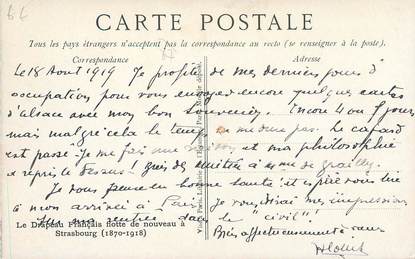 CARTE POSTALE
Tous les pays étrangers n'acceptent pas la correspondance au recto (se renseigner à la poste).
Correspondance
Adresse
Le 18 Aout 1919 Je profite de mes derniers jours d'
occupation pour vous envoyer encore quelques cartes
d'alsace avec mon bon souvenir. Encore 4 ou 5 jours
mais malgré cela le temps ne me dure pas. Le cafard
est passé. Je me fais une raison et ma philosophie
a repris le dessus! amitiés à de
Je vous en bonne santé et
à mon arrivée à Paris. Je vous dirai mes impressions
sur ma rentrée dans le "civil"!
Bien affectueusement
Le Drapeau Français flotte de nouveau à
Strasbourg (1870-1918)